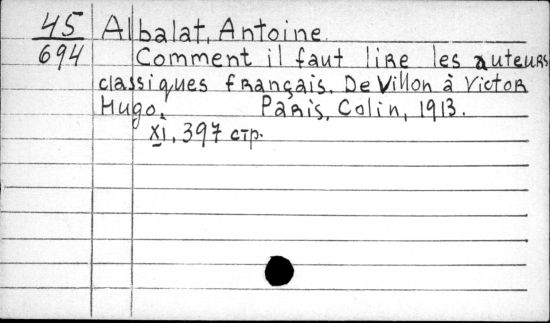 45
694
Albalat, Antoine
Comment il faut lire les auteurs
classiques français. De Villon à Victor
Hugo. Paris, Colin, 1913.
XI, 397 стр.